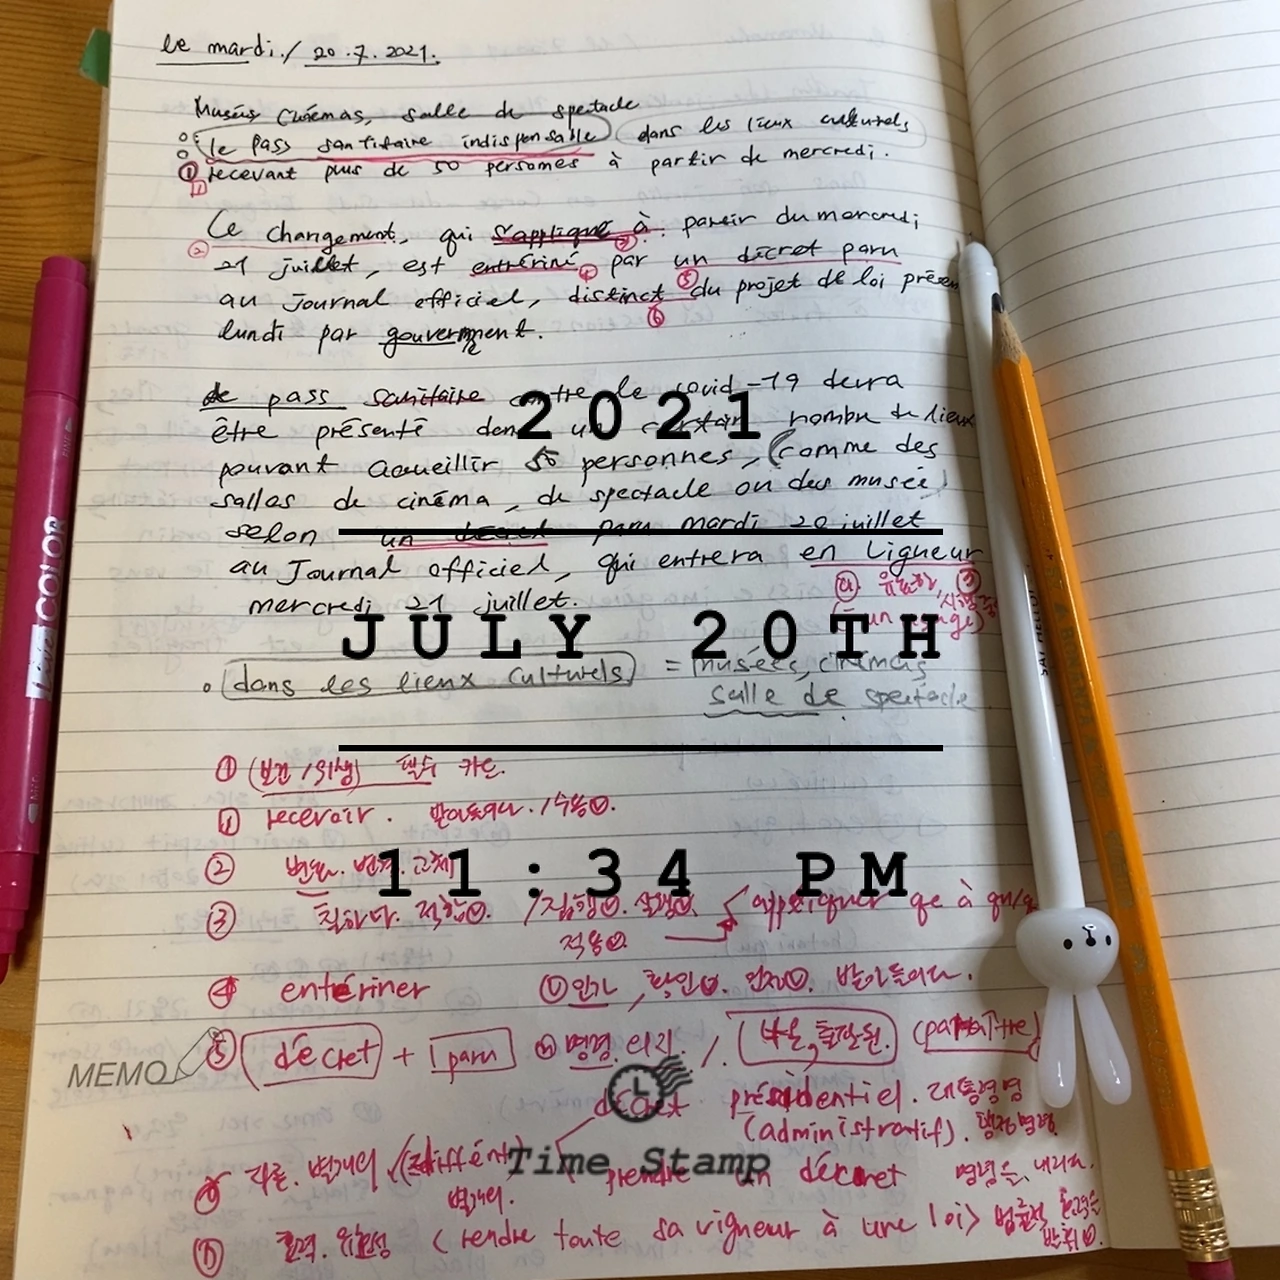 le mardi. / 20.7.2021.
Musées Cinémas, salle de spectacle
le pass sanitaire indispensable dans les lieux culturels
① recevant plus de 50 personnes à partir de mercredi.
1
Ce changement, qui s'applique à partir du mercredi
② ③
21 juillet, est entériné ④ par un décret paru
au journal officiel, distinct ⑤ du projet de loi présen
⑥
lundi par gouvernment.
de pass sanitaire contre le covid-19 devra
être présenté dans un certain nombre de lieux
pouvant accueillir 50 personnes, (comme des
salles de cinéma, de spectacle ou des musée)
selon un décret paru mardi 20 juillet
au Journal officiel, qui entrera en Ligueur
유효한, ⑦
mercredi 21 juillet.
dans les lieux culturels = musées, cinémas
salle de spectacle
① (보건/위생) 필수 카드.
1 recevoir. 받아들이다. /수용
② 변화. 변경. 교체
③ 칠하다. 적합 /집행. 실행 appliquer qc à qn/qc
적용
④ entériner 인가, 확인. 인정. 받아들이다.
⑤ décret + paru 명령. 의지. / 나온, 출판된. (paraître)
décret présidentiel. 대통령령
(administratif). 행정명령
⑥ 다른. 별개의. (différent) prendre un décret 명령을 내리다.
별개의.
⑦ 효력. 유효성 (rendre toute sa vigueur à une loi) 법률적 효력을
2021
JULY 20TH
11:34 PM
MEMO
Time Stamp
LiVE COLOR